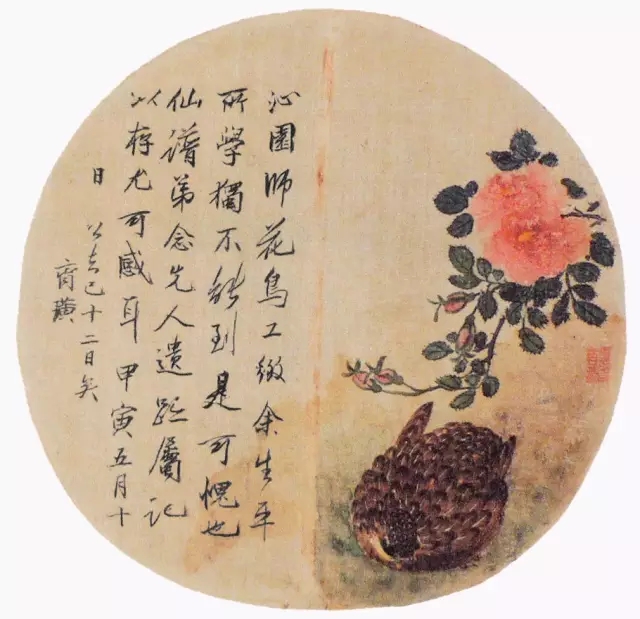 沁園師花鳥工緻余生平
所學獨不能到是可愧也
仙譜弟念先人遺跡屬記
以存尤可感耳 甲寅五月十
日 公去已十二日矣
齊璜